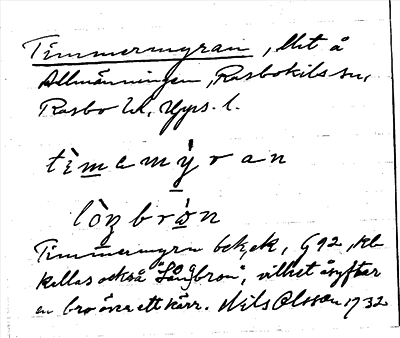 Timmermyran, Mst å
Allmänningen, Rasbokils sn,
Rasbo hd, Upps. l.
tìmemỳran
lòŋbrọn
Timmermyra bekr.ek, G 92, kl
kallas också "Långbron", vilket åsyftar
en bro över ett kärr. Nils Olsson 1932